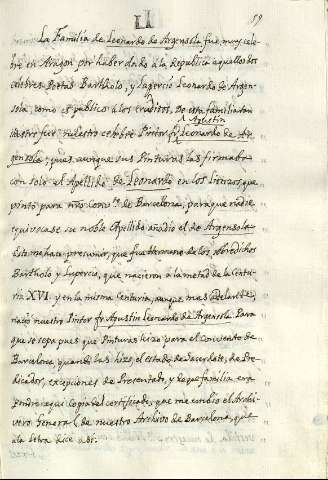 LI
59
La Familia de Leonardo de Argensola fue muy cele-
bre en Aragon por haber dado a la Republica aquellos dos
celebres Poetas Bartholo, y Lupercio Leonardo de Argen-
sola, como es publico a los eruditos. De esta familia tan
ilustre fue nuestro celebre Pintor fr. Agustin Leonardo de Ar-
gensola; pues aunque sus Pinturas las firmaba
con solo el Apellido de Leonardo en los Lienzos que
pintó para nro Convto. de Barcelona, para que nadie
equivocase su noble Apellido añadió el de Argensola.
Esto me hace presumir, que fue Hermano de los sobredichos
Bartholo y Lupercio, que nacieron a la metad de la Centu-
ria XVI. y en la misma Centuria, aunque mas adelante,
nació nuestro Pintor fr. Agustin Leonardo de Argensola. Para
que se sepa pues que Pinturas hizo para el Convento de
Barcelona, quando las hizo, el estado de Sacerdote, de Pre-
dicador, excepciones de Presentado, y de que familia era
pondré aqui copia del certificado, que me embió el Archi-
vero General de nuestro Archivo de Barcelona, que
a la letra dice asi: